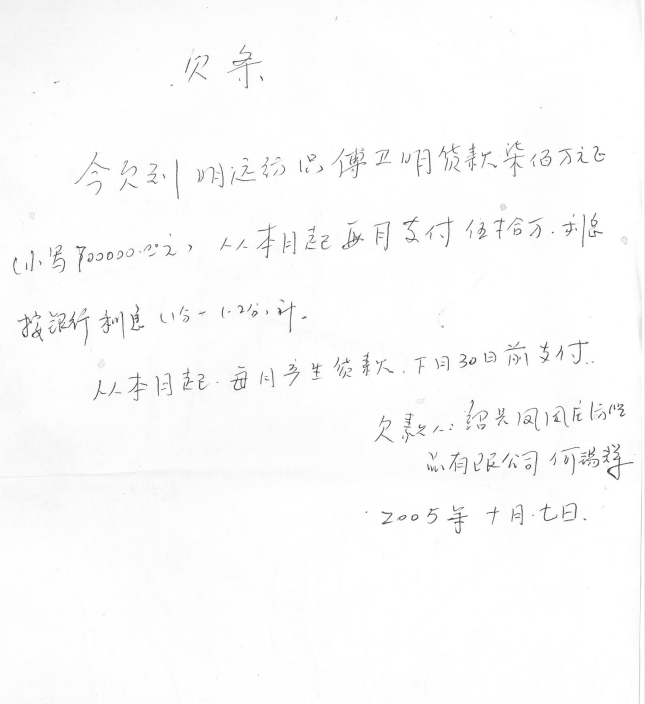 欠条
今欠到明远纺织傅卫明货款柒佰万元正
(小写700000.00元),从本月起每月支付伍拾万.利息
按银行利息(1分-1.2分)计。
从本月起.每月产生货款.下月30日前支付.
欠款人:绍兴凤凰庄纺织
品有限公司 何锡辉
2005年十月.七日.